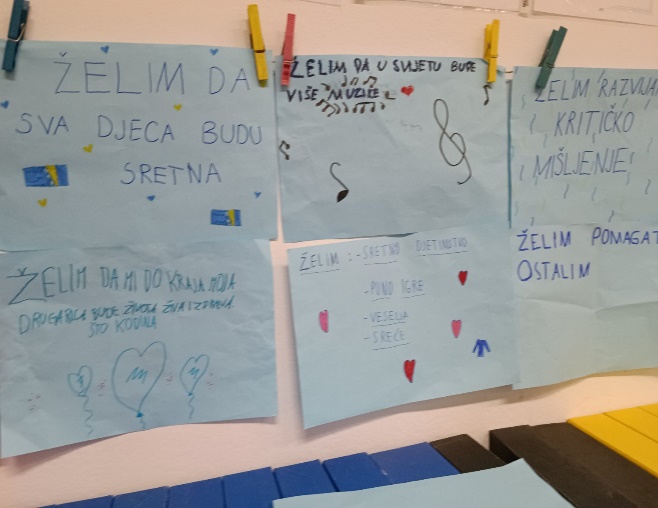 ŽELIM DA
SVA DJECA BUDU
SRETNA
ŽELIM DA U SVIJETU BUDE
VIŠE MUZIKE
ŽELIM RAZVIJA
KRITIČKO
MIŠLJENJE
ŽELIM DA MI DO KRAJA MOJA
DRUGARICA BUDE ŽIVOTA ŽIVA I ZDRAVA
STO KODINA
ŽELIM : - SRETNO DJETINJSTVO
- PUNO IGRE
- VESELJA
- SREĆE
ŽELIM POMAGAT
OSTALIM